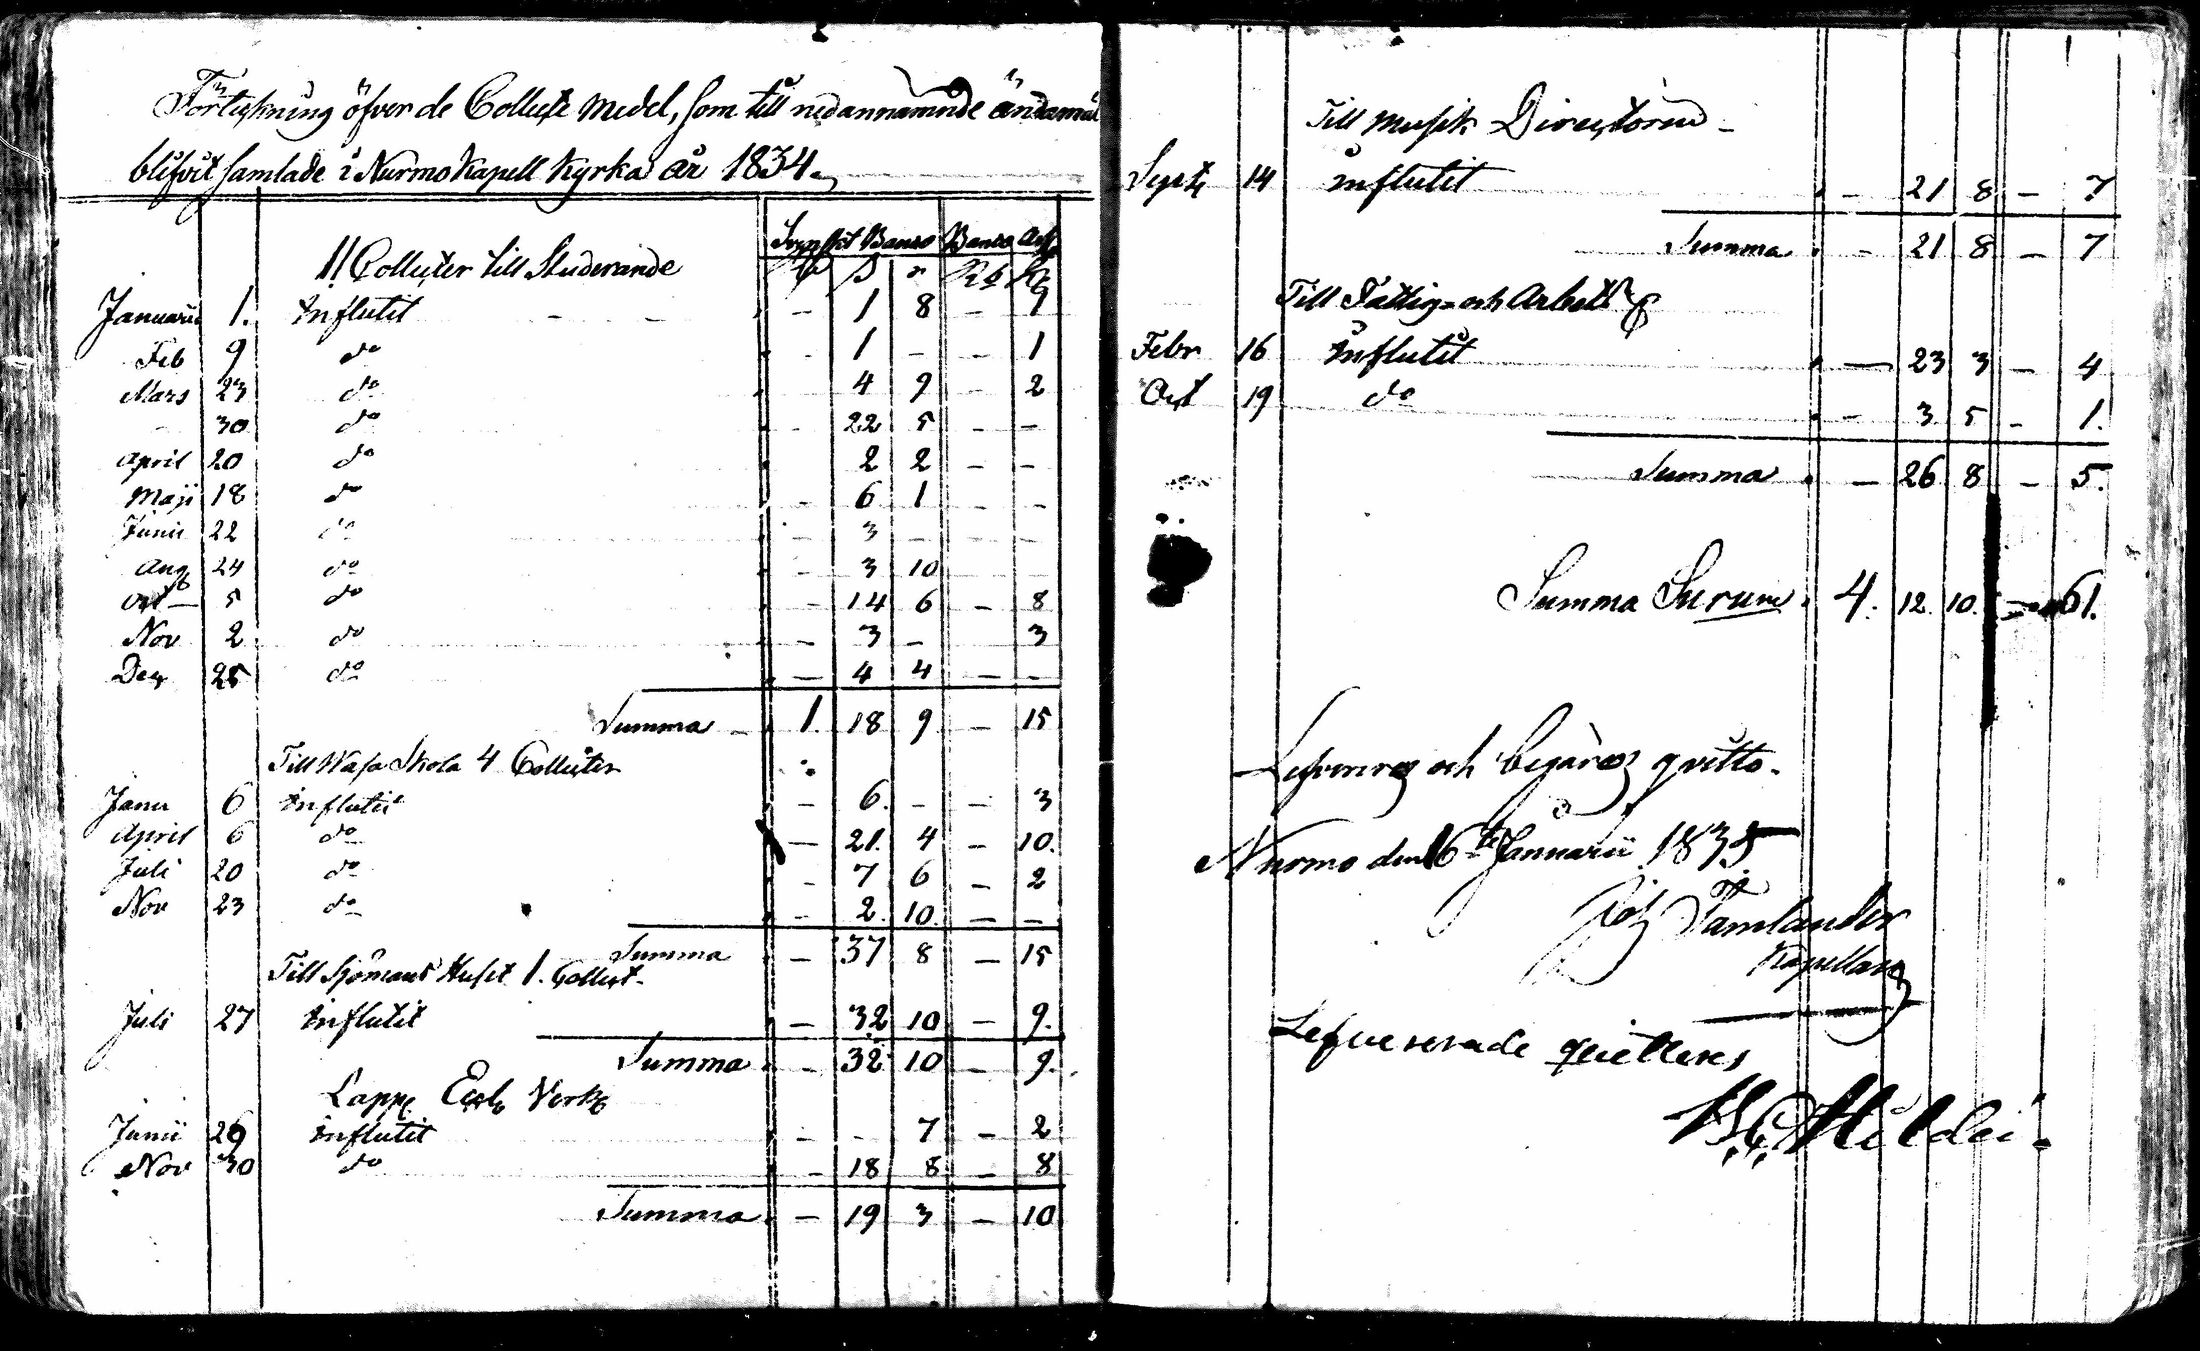 Förteckning öfver de Collecte Medel, som till nedannämnde ändamål
blifvit samlade i Nurmo Kapell Kyrka år 1834.
Svenskt Banco Banco Ass
11 Collecter till Studerande ß r Rb
Januarii 1. Influtit - 1 8 - 1
Feb 9 do - 1 - - 1
Mars 23 do 4 9 - 2
30 do - 22 5 - -
April 20 do 2 2 - -
Maji 18 do - 6 1 - -
Junii 22 do - 3 - - -
Aug 24 do - 3 10
Oct - 5 do - 14 6 - 8
Nov 2 do - 3 - 3
Dec 25 do - 4 4 - -
Summa - 1. 18 9 - 15
Till Wasa Skola 4 Collecter
Janu 6 Influtit - 6. - - 3
April 6 do - 21. 4 - 10.
Juli 20 do - 7 6 - 2
Nov 23 do - 2. 10. - -
Summa - 37 8 - 15
Till Sjömans Huset 1. Collect.
Juli 27 Influtit - 32 10 - 9.
Summa - 32 10 - 9.
Lapp Verk
Junii 29 Influtit - - 7 - 2
Nov 30 do - 18 8 - 8
Summa - 19 3 - 10
Till Musik Directoren -
Sept 14 Influtit - 21 8 - 7
Summa - 21 8 - 7
Till Fattig- och Arbets
Febr 16 Influtit - 23 3 - 4
Oct 19 do - 3 5 - 1.
Summa - 26 8 - 5.
Summa Surum 4. 12. 10. - 61.
och begäres qvitto.
Nurmo den 16 Januarii 1835
Joh Tamlander
Kapellan
Lefvererade quitteras